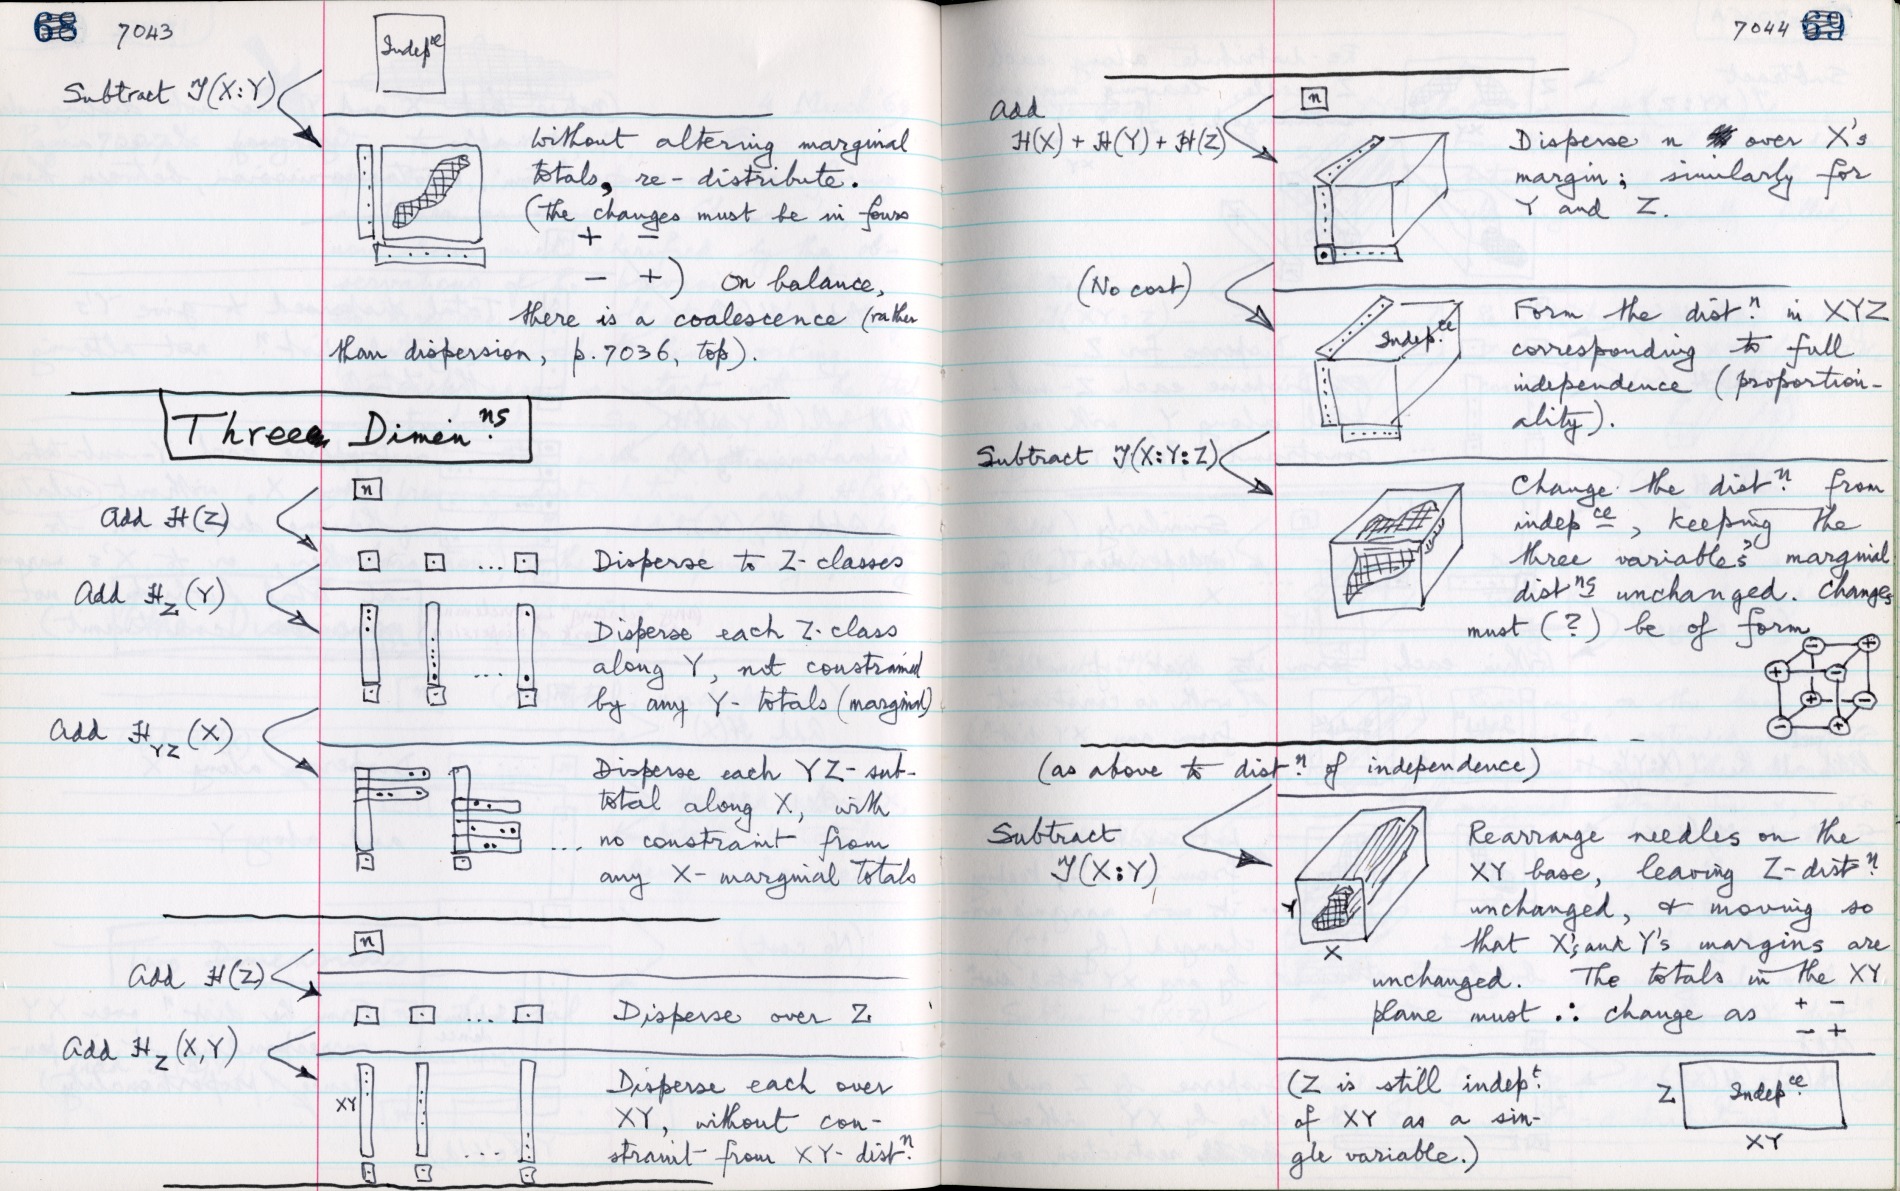 68 7043
Indepᶜᵉ
Subtract T(X:Y)
Without altering marginal
totals, re-distribute.
(the changes must be in fours
+ −
− +) On balance,
there is a coalescence (rather
than dispersion, p.7036, top).
Three Dimenⁿˢ.
n
Add H(Z)
Disperse to Z-classes
Add H_Z(Y)
Disperse each Z-class
along Y, not constrained
by any Y-totals (marginal)
Add H_YZ(X)
Disperse each YZ-sub-
total along X, with
no constraint from
any X-marginal totals
n
Add H(Z)
Disperse over Z
Add H_Z(X,Y)
XY
Disperse each over
XY, without con-
straint from XY-distⁿ.
7044 69
n
Add
H(X) + H(Y) + H(Z)
Disperse n over X's
margin; similarly for
Y and Z.
(No cost)
Indepᶜᵉ
Form the distⁿ. in XYZ
corresponding to full
independence (proportion-
ality).
Subtract T(X:Y:Z)
Change the distⁿ. from
indepᶜᵉ, keeping the
three variables' marginal
distⁿˢ unchanged. Changes
must (?) be of form
− +
+ −
+ −
− +
(as above to distⁿ. of independence)
Subtract
T(X:Y)
Y
X
Rearrange needles on the
XY base, leaving Z-distⁿ.
unchanged, & moving so
that X's and Y's margins are
unchanged. The totals in the XY
plane must ∴ change as + −
− +
(Z is still indepᵗ.
of XY as a sin-
gle variable.)
Z Indepᶜᵉ
XY